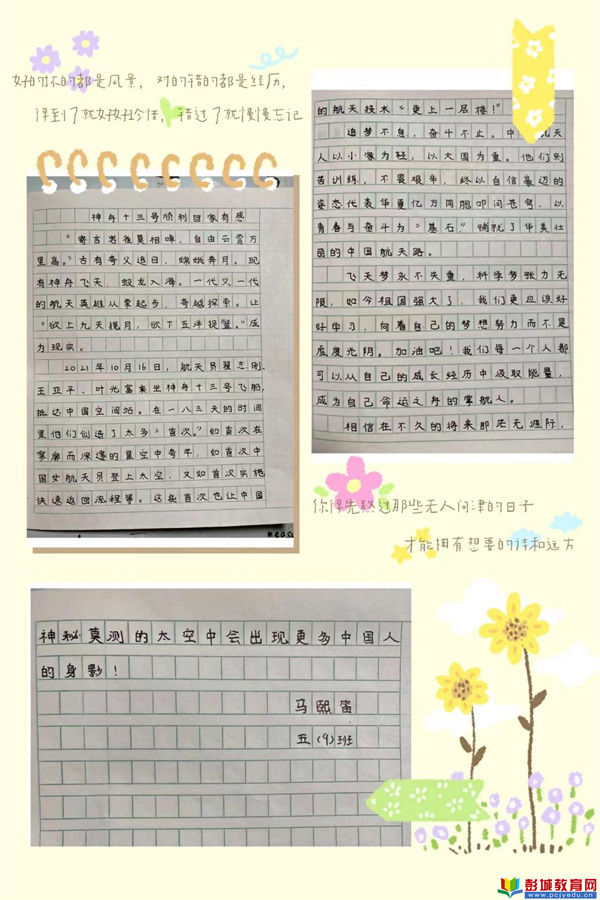 好的坏的都是风景，对的错的都是经历，
得到了就好好珍惜，错过了就慢慢忘记
神舟十三号顺利回家有感
“寄言君雀莫相啅，自由云霄万
里高。”古有夸父追日，嫦娥奔月。现
有神舟飞天，蛟龙入海。一代又一代
的航天英雄从零起步，奇越探索。让
“欲上九天揽月，欲下五洋捉鳖。”成
为现实。
2021年10月16日，航天员翟志刚、
王亚平、叶光富乘坐神舟十三号飞船
抵达中国空间站。在一八三天的时间
里他们创造了太多“首次。”如首次在
寥廓而深邃的星空中夸年，如首次中
国女航天员登上太空，又如首次实施
快速返回流程等。这些首次也让中国
的航天技术“更上一层楼！”
追梦不息，奋斗不止。中国航天
人以小家为轻，以大国为重。他们刻
苦训练。不畏艰辛，终以自信豪迈的
姿态代表华夏亿万同胞叩问苍穹，以
青春与奋斗为“基石”铺就了华美壮
丽的中国航天路。
飞天梦永不失重，科学梦张力无
限，如今祖国强大了，我们更应该好
好学习，向着自己的梦想努力而不是
虚度光阴。加油吧！我们每一个人都
可以从自己的成长经历中吸取能量，
成为自己命运之舟的掌航人。
相信在不久的将来那茫无涯际，
你得先熬过那些无人问津的日子
才能拥有想要的诗和远方
神秘莫测的太空中会出现更多中国人
的身影！
马熙笛
五(9)班
彭城教育网
www.pcjyedu.cn